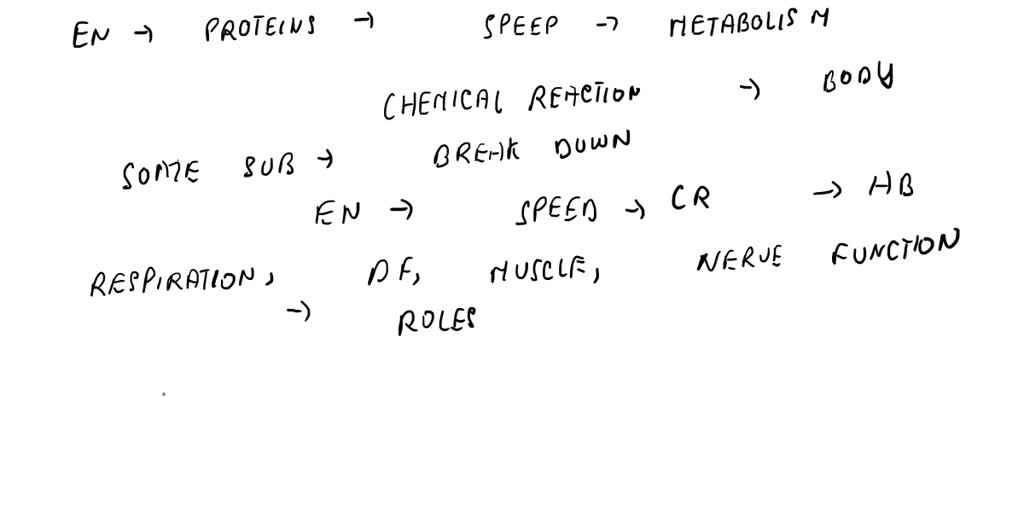 EN → PROTEINS → SPEEP → METABOLISM
CHEMICAL REACTION → BODY
SOME SUB → BREAK DOWN
EN → SPEED → CR → HB
RESPIRATION, DF, MUSCLE, NERVE FUNCTION
→ ROLES